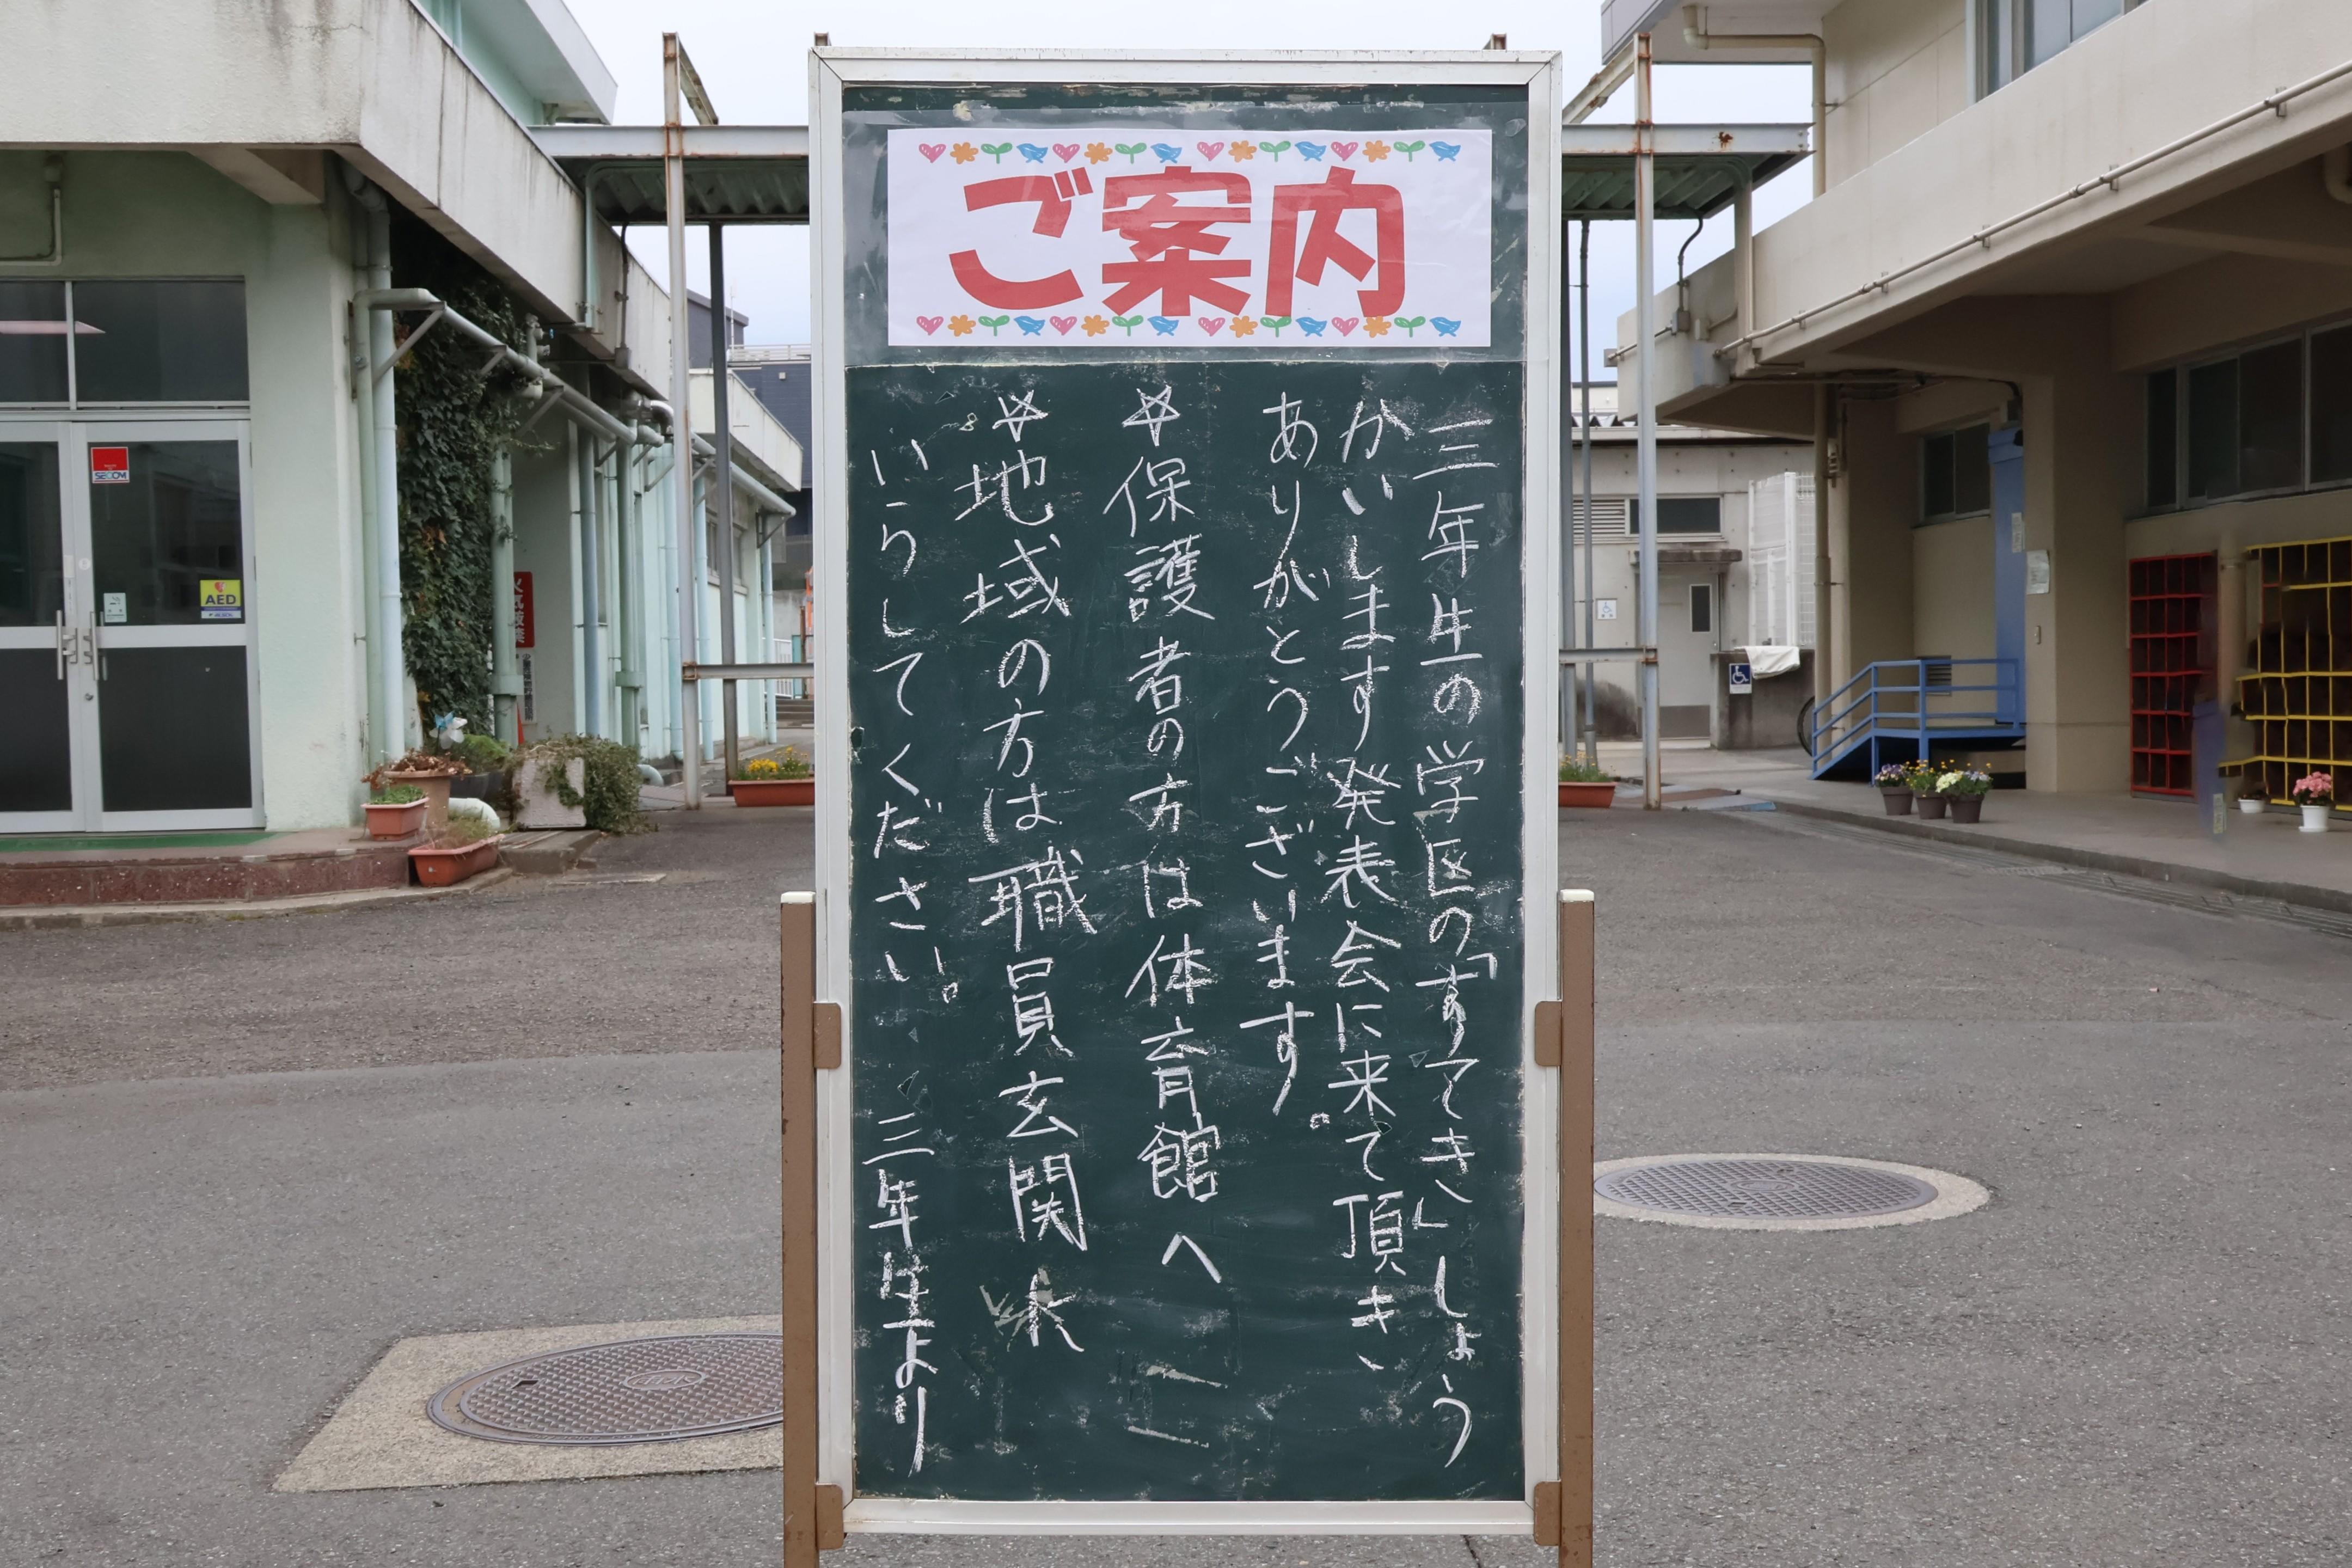 ご案内
三年生の学区の「すてき」しょう
かいします発表会に来て頂き、
ありがとうございます。
☆保護者の方は体育館へ
☆地域の方は職員玄関
いらしてください。 三年生より
SECOM
AED